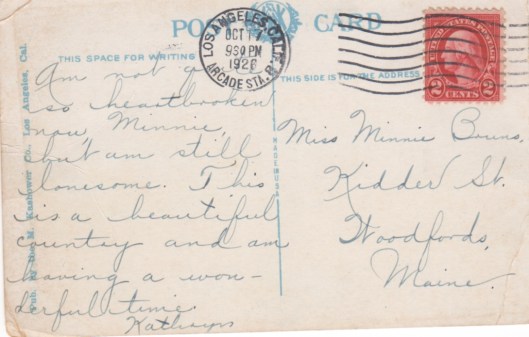 POST CARD
LOS ANGELES, CALIF.
OCT
930 PM
1926
ARCADE STA.
UNITED STATES POSTAGE
2 CENTS 2
THIS SPACE FOR WRITING
THIS SIDE IS FOR THE ADDRESS
Am not
so heartbroken
now, Minnie,
but am still
lonesome. This
is a beautiful
country and am
having a won-
derful time.
Kathryn
Miss Minnie
Kidder St.
Woodfords,
Maine.
MADE IN USA
Pub. by M. Kashower Co., Los Angeles, Cal.